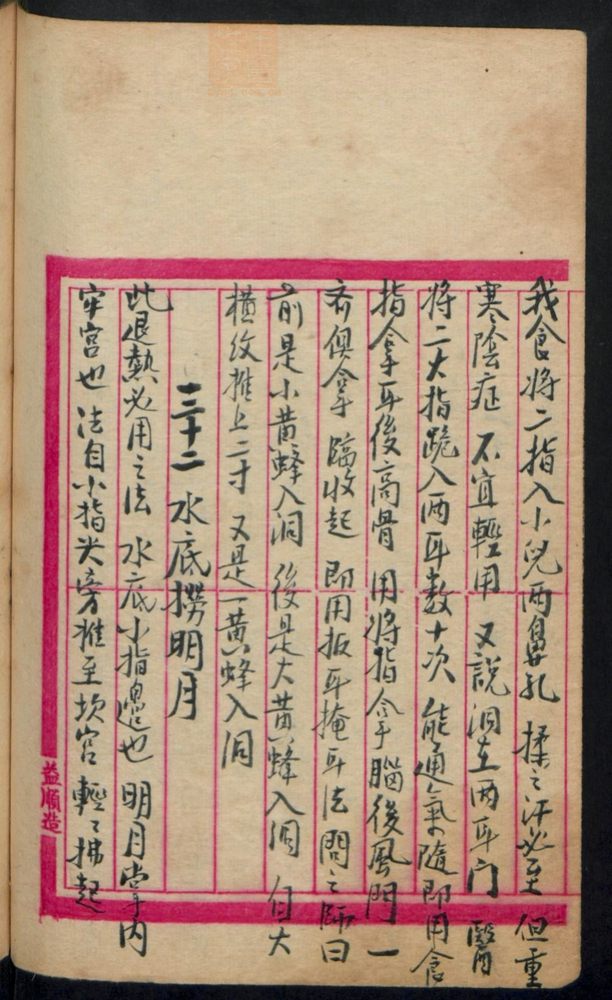 我食將二指入小兒兩鼻孔 揉之汗必至 但重
寒陰症 不宜輕用 又說洞在兩耳门 醫
將二大指跪入兩耳数十次 能通氣 隨即用食
指拿耳後高骨 用將指拿腦後風門 一
齐俱拿 臨收起 即用扳耳掩耳法 問之師曰
前是小黄蜂入洞 後是大黄蜂入洞 自大
橫纹推上二寸 又是一黄蜂入洞
三十二 水底撈明月
此退熱必用之法 水底小指邊也 明月掌内
牢宮也 法自小指尖旁推至坎宮 輕之拂起
益順造